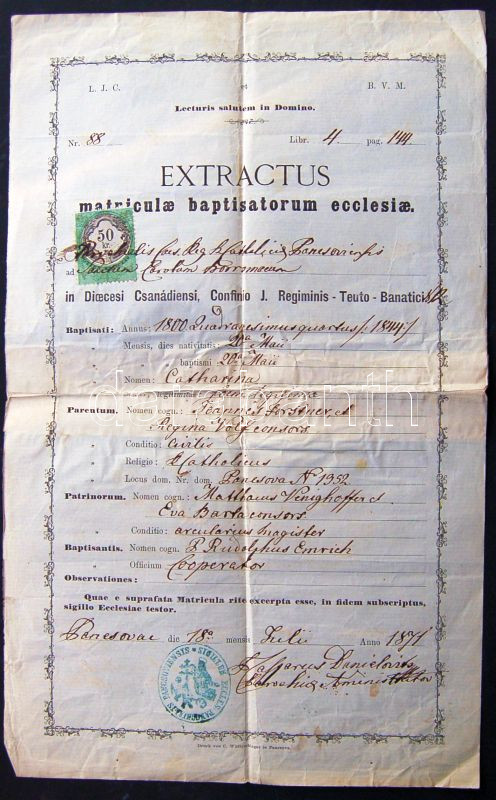 L. J. C. et B. V. M.
Lecturis salutem in Domino.
Nr. 88 Libr. 4 pag. 144.
EXTRACTUS
matriculæ baptisatorum ecclesiæ.
50
kr.
Parochialis Caes. Reg. R. Catholicae Pancsoviensis
ad Sanctum Carolum Borromaeum
in Diœcesi Csanádiensi, Confinio J. Regiminis - Teuto - Banatici
Baptisati: Annus: 1800 Quadragesimus quartus /: 1844 :/
" Mensis, dies nativitatis: 20a Maii
" " " baptismi 20a Maii
" Nomen: Catharina
" legitimitas:
Parentum. Nomen cogn.: Joannes Forstner et
Regina Wolf consors.
" Conditio: civilis
" Religio: R. Catholicus
" Locus dom. Nr. dom. Pancsova No 1952
Patrinorum. Nomen cogn.: Mathaeus Venighoffer et
Eva Barta consors
" Conditio: arcularius magister
Baptisantis. Nomen cogn. P. Rudolphus Emrich
" Officium Cooperator
Observationes:
Quae e suprafata Matricula rite excerpta esse, in fidem subscriptus,
sigillo Ecclesiae testor.
Pancsovae die 18a mensis Julii Anno 1871
Casparus Danielovits
Parochiae Administrator